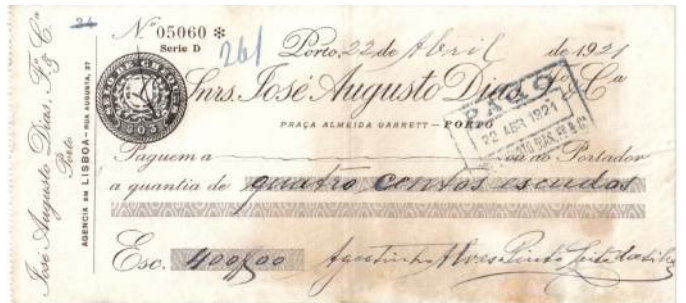 José Augusto Dias, Fº & Cª
Porto
AGENCIA EM LISBOA – RUA AUGUSTA, 27
24
Nº 05060 *
Serie D
261
Porto, 22 de Abril de 1921
Snrs. José Augusto Dias, Fº & Cª
PRAÇA ALMEIDA GARRETT – PORTO
PAGO
22 ABR 1921
Paguem a ou ao Portador
a quantia de quatro centos escudos
Esc. 400$00 Agostinho Alves Pinto Leite da Silva